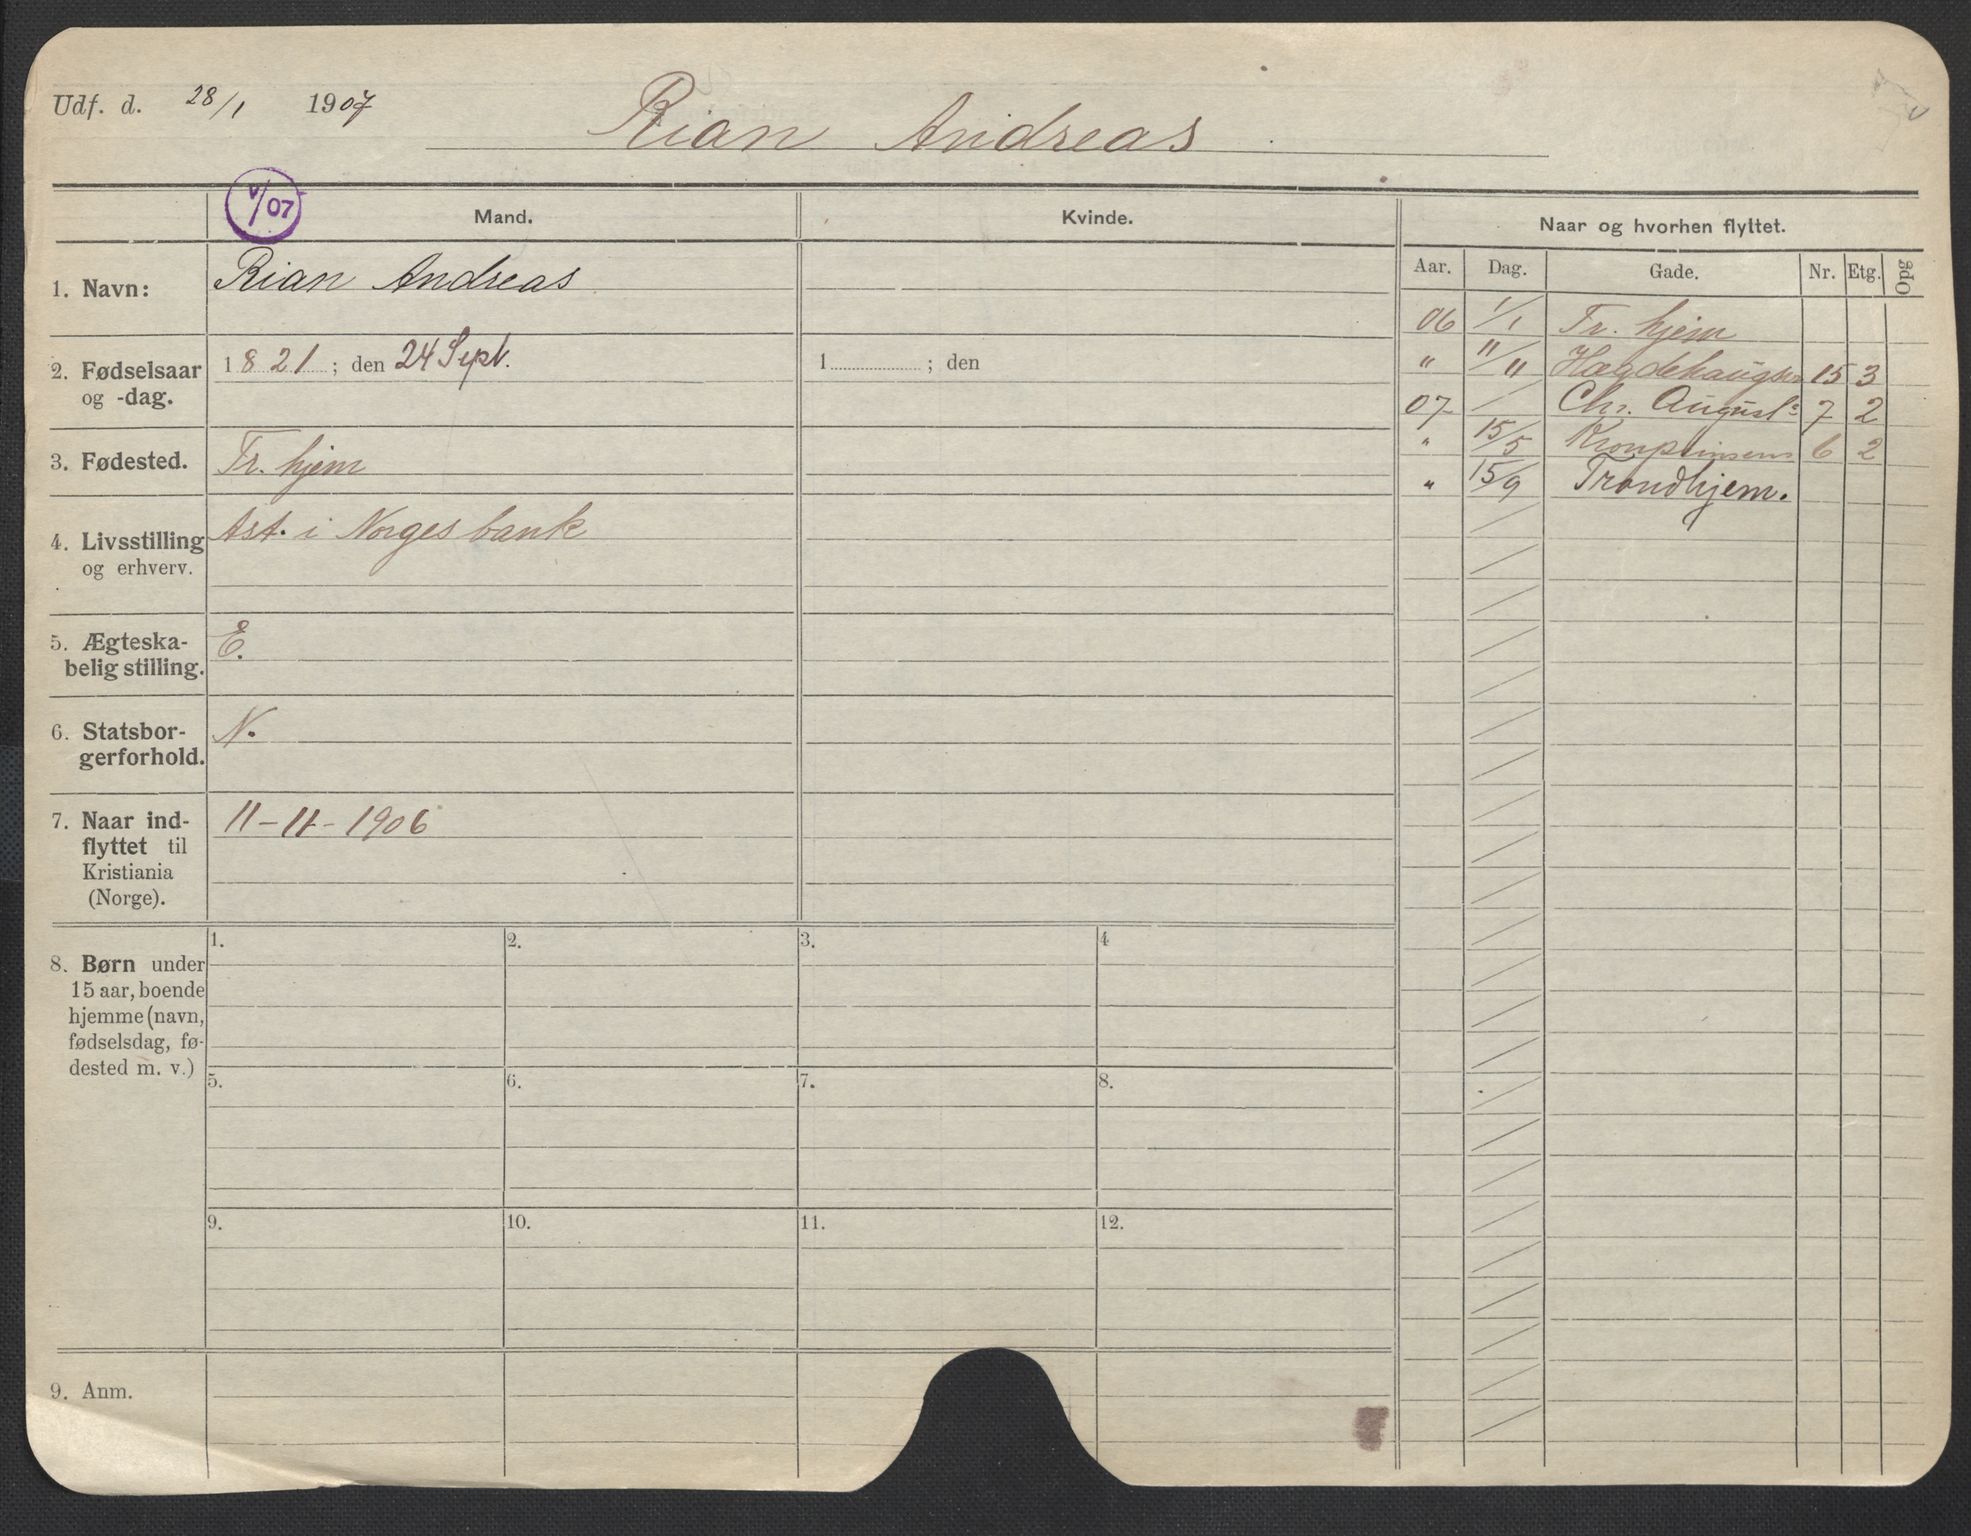 Udf. d. 28/1 1907
Rian Andreas
V/07
Mand.
Kvinde.
Naar og hvorhen flyttet.
Aar. Dag. Gade. Nr. Etg. Opg
1. Navn: Rian Andreas
2. Fødselsaar og -dag.
1821; den 24 Sept.
1 ; den
3. Fødested. Tr.hjem
4. Livsstilling og erhverv.
Ast. i Norges bank
5. Ægteskabelig stilling. E.
6. Statsborgerforhold. N.
7. Naar indflyttet til Kristiania (Norge).
11-11-1906
06 1/1 Tr. hjem
" 11/11 Hægdehaugsv 15 3
07 / Chr. Augusts 7 2
" 15/5 Kronprinsens 6 2
" 15/9 Trondhjem.
8. Børn under 15 aar, boende hjemme (navn, fødselsdag, fødested m. v.)
1. 2. 3. 4
5. 6. 7. 8.
9. 10. 11. 12.
9. Anm.